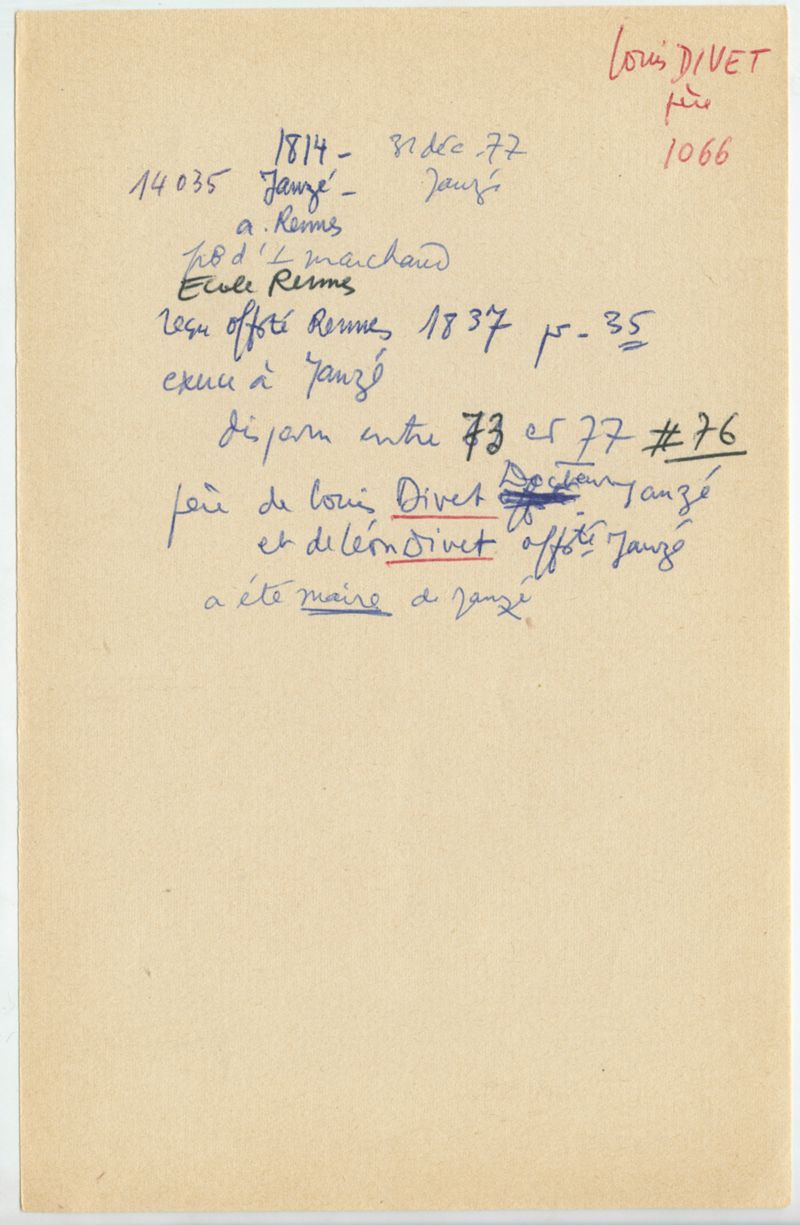 Louis DIVET
père
1066
1814 - 31 déc. 77
14035 Janzé - Janzé
a. Rennes
d' marchand
Ecole Rennes
reçu offsté Rennes 1837 p - 35
exerce à Janzé
disparu entre 73 et 77 #76
père de Louis Divet Docteur Janzé
et de Léon Divet offsté Janzé
a été maire de Janzé